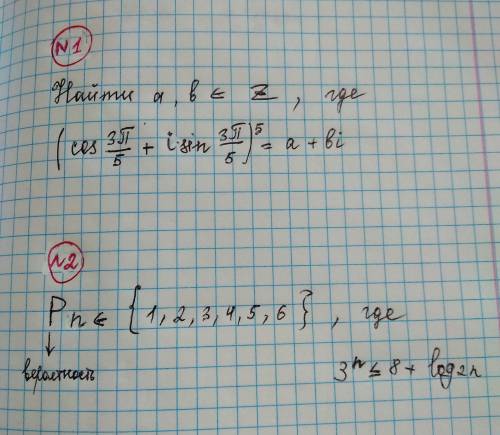 N1
Найти a, b ∈ Z, где
(cos 3π/5 + i·sin 3π/5)^5 = a + bi
N2
P n ∈ {1, 2, 3, 4, 5, 6}, где
вероятность
3^n ≤ 8 + log₂n